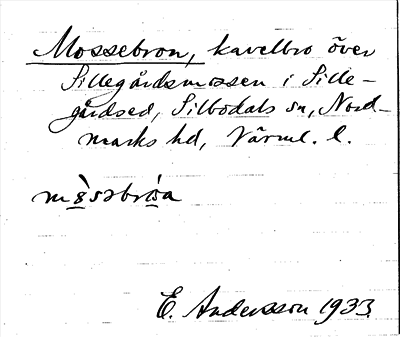 Mossebron, kavelbro över
Sillegårdsmossen i Sille-
gårdsed, Silbodals sn, Nord-
marks hd, Värml. l.
E. Andersson 1933